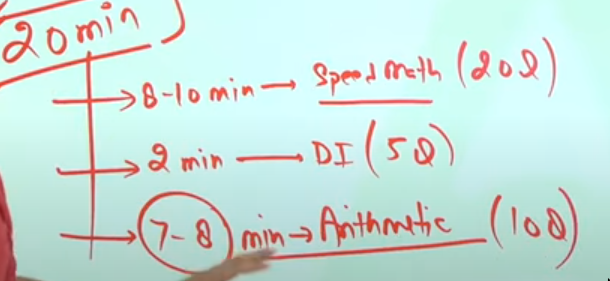 20min
8-10 min → Speed Math (20Q)
2 min — DI (5Q)
7-8 min → Arithmetic (10Q)